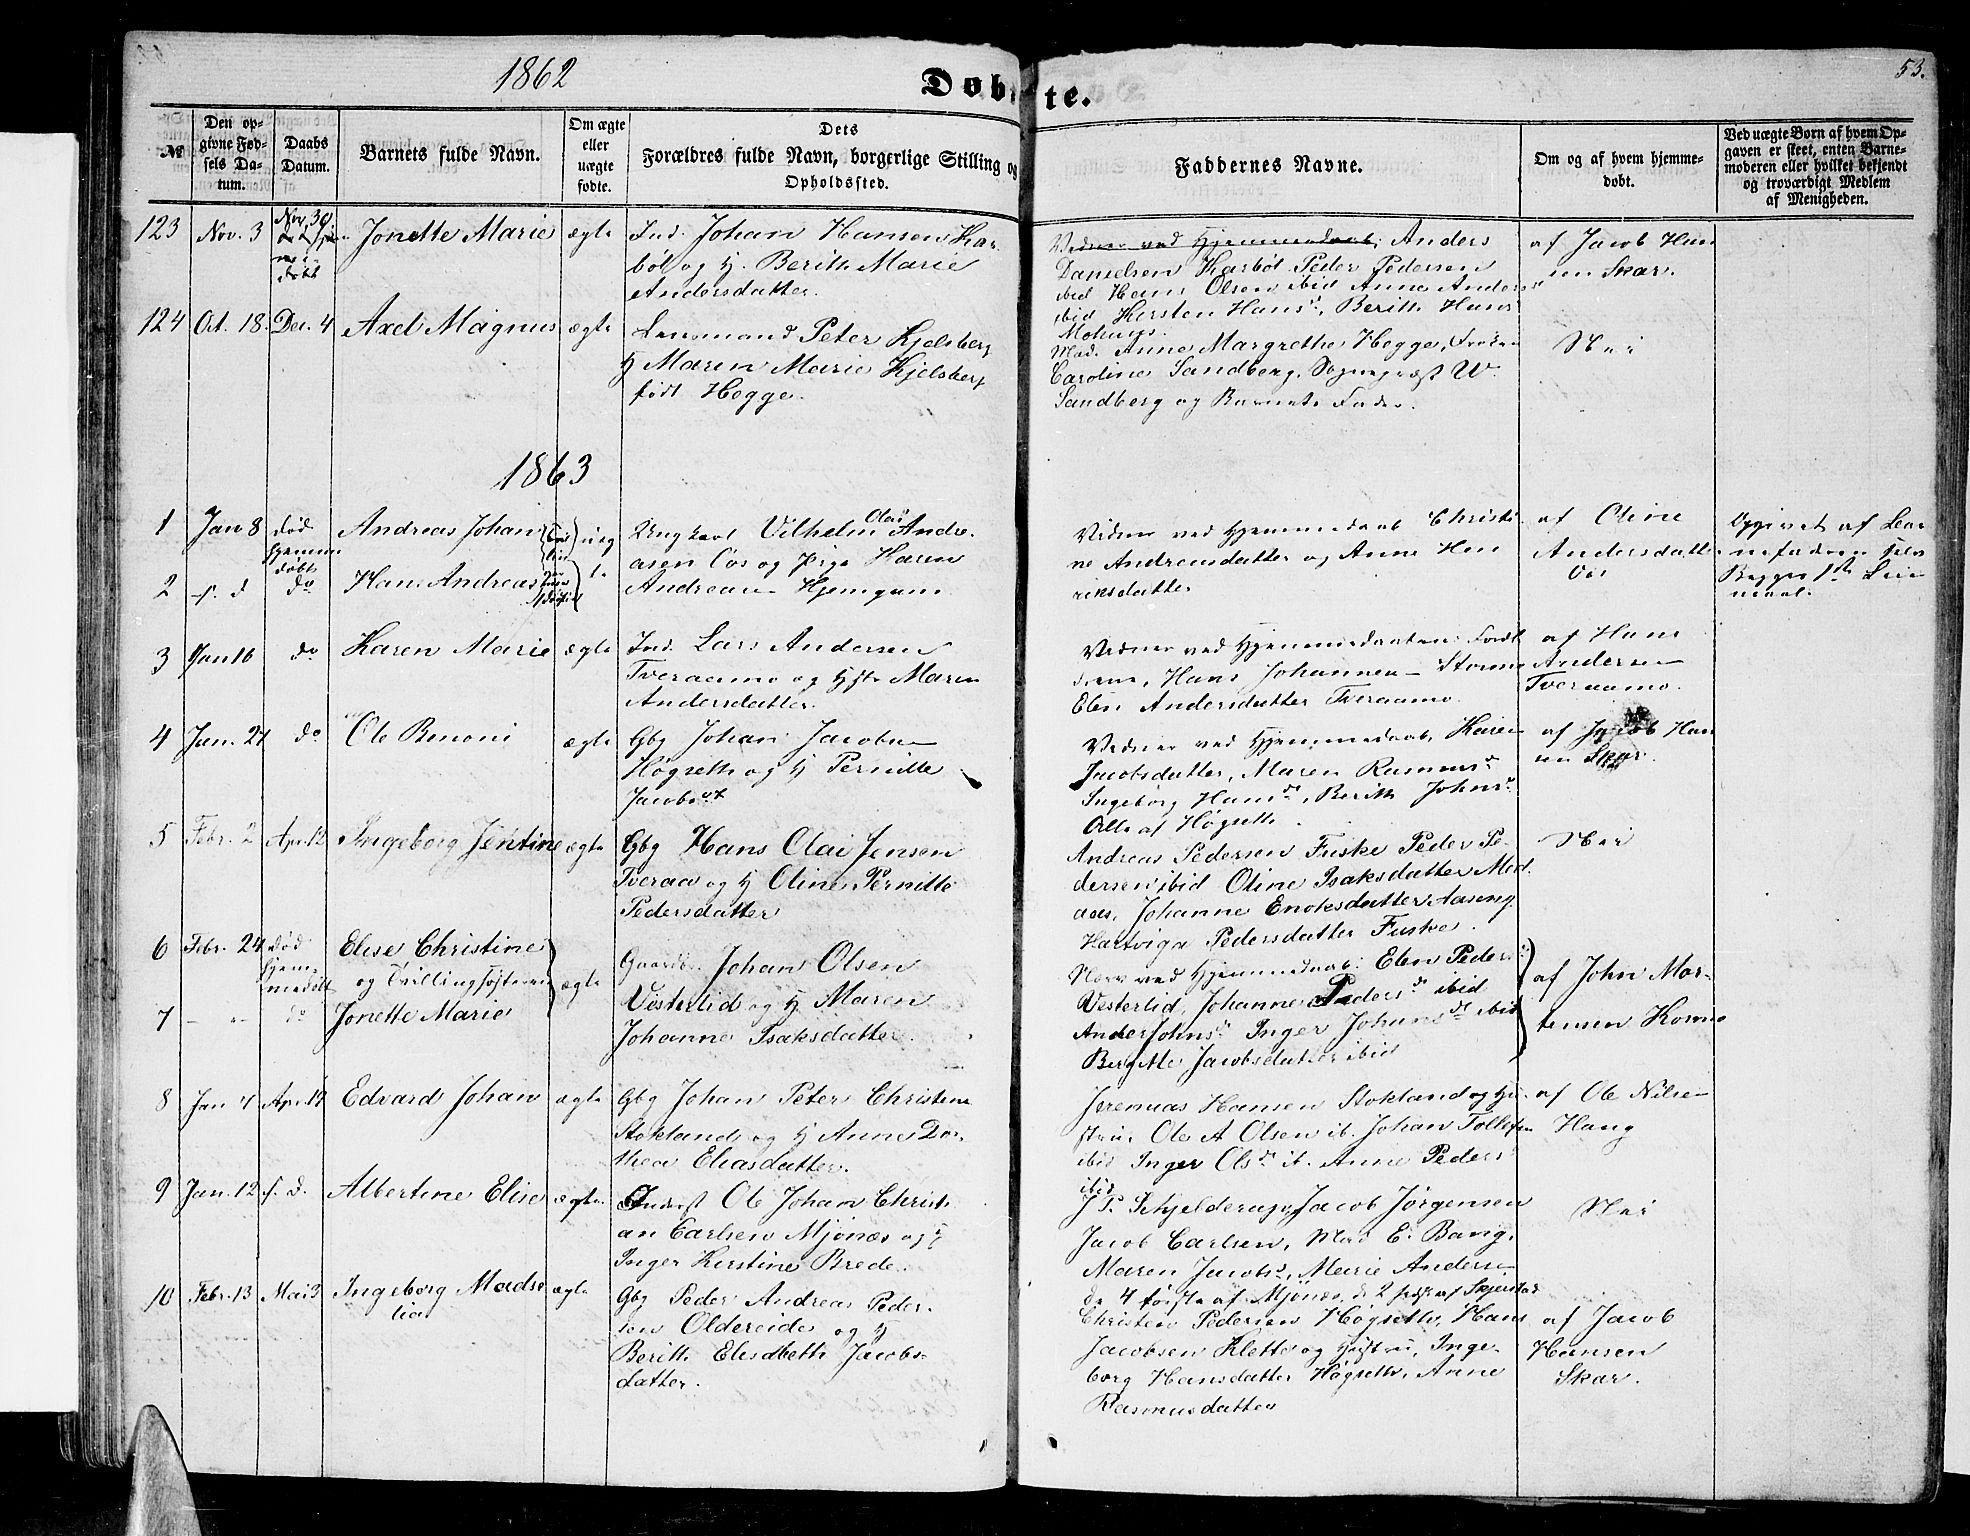 1862
Døbte.
53.
№
Den opgivne Fødsels Datum.
Daabs Datum.
Barnets fulde Navn.
Om ægte eller uægte fødte.
Dets Forældres fulde Navn, borgerlige Stilling og Opholdssted.
Faddernes Navne.
Om og af hvem hjemmedøbt.
Ved uægte Børn af hvem Opgaven er skeet, enten Barnemoderen eller hvilket bekjendt og troværdigt Medlem af Menigheden.
123 Nov. 3 Nov. 30 Jonette Marie ægte
Ind. Johan Hansen Kar-
bøl og H. Berith Marie
Andersdatter.
Vidner ved Hjemmedaab: Anders
Danielsen Karbøl Peder Pedersen
ibid Hans Olsen ibid Anne Anders
ibid Kersten Hans, Berith Hans
af Jacob Han
sen Skar.
124 Oct. 18. Dec. 4 Axel Magnus ægte
Lensmand Peter Kjelsberg
H Maren Marie Kjelsberg
født Hegge.
Mad. Anne Margrethe Hegge, Frøken
Caroline Sandberg, Sognepræst W.
Sandberg og Barnets Fader.
Nei
1863
1 Jan 8 død
hjemme
døbt
Andreas Johan
2 s. d do Hans Andreas
Ungkarl Vilhelm Olai Andre-
asen Oes og Pige Karen
Andreas Hjemgam
Vidner ved Hjemmedaab Christi-
ne Andreasdatter og Anne Hen
riksdatter
af Oline
Andersdatter
Opgivet af Bar
nefaderen selv
Begges 1ste Leie
maal.
3 Jan 16 do Karen Marie ægte
Ind. Lars Andersen
Tveraamo og Hst Maren
Andersdatter.
Vidner ved Hjemmedaaben: Foræl
drene, Hans Johannesen Storm
Elen Andersdatter Tveraamo.
af Hans
Andersen
Tveraamo.
4 Jan. 21 do Ole Benoni ægte
Gbg Johan Jacobsen
Høgseth og H Pernille
Jacobsdt
Vidner ved Hjemmedaab, Karen
Jacobsdatter, Maren Rasmusd
Ingeborg Hansd, Berith Johnsd
Alle af Høgseth.
af Jacob Han
sen Skar.
5 Febr. 2 Apr. 12 Ingeborg Jentine ægte
Gbg Hans Olai Jensen
Tveraa og H Oline Pernille
Pedersdatter
Andreas Pedersen Fuske Peder Pe-
dersen ibid Oline Isaksdatter Mod-
aas, Johanne Enoksdatter Aaseng
Hartviga Pedersdatter Fuske.
Nei
6 Febr. 24 død
hjem-
medøbt
Elise Christine
og Tvillingsøsteren
7 - „ - do Jonette Marie
ægte
Gaardbr. Johan Olsen
Vesterlid og H Maren
Johanne Isaksdatter.
Nærv ved Hjemmedaab: Elen Peders
Vesterlid, Johanne Pedersd ibid
Ander Johns, Inger Johansd ibid
Bergitte Jacobsdatter ibid
af John Mor-
tensen Kornmo
8 Jan 4 Apr. 17 Edvard Johan ægte
Gbg Johan Peter Christens
Stokland og H Anne Do-
thea Eliasdatter.
Jeremias Hansen Stokland og Hu-
stru, Ole A Olsen ib. Johan Tollefsen
ibid Inger Olsd ib. Anne Peders
ibid
af Ole Nilsen
Haug
9 Jan. 12 s. d. Albertine Elise ægte
Inderst Ole Johan Christi-
an Carlsen Mjønæs og H
Inger Kirstine Brede.
J P. Schjelderup, Jacob Jørgensen
Jacob Carlsen, Mad E. Bang,
Maren Jacobs, Marie Anders
de 4 første af Mjønes, de 2 sidste af Skjerstad
Nei
10 Febr. 13 Mai 3 Ingeborg Madse
lia
ægte
Gbg Peder Andreas Peder-
sen Oldereide og H
Berith Elisabeth Jacobs-
datter.
Christen Pedersen Høgseth, Hans
Jacobsen Klette og Hustru, Inge-
borg Hansdatter Høgseth, Anne
Rasmusdatter
af Jacob
Hansen
Skar.